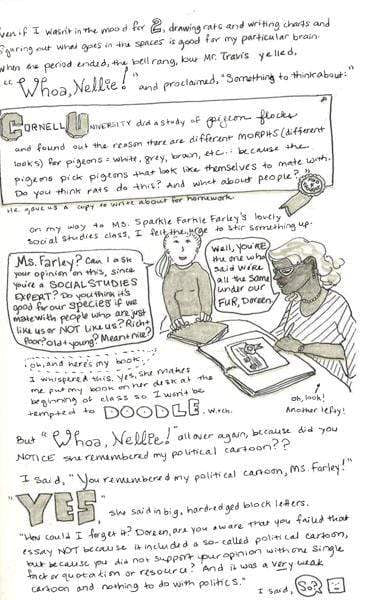 even if I wasn't in the mood for 2, drawing rats and writing charts and
figuring out what goes in the spaces is good for my particular brain.
When the period ended, the bell rang, but Mr. Travis yelled,
"Whoa, Nellie!" and proclaimed, "Something to think about:"
CORNELL UNIVERSITY did a study of pigeon flocks
and found out the reason there are different MORPHS (different
looks) for pigeons = white, grey, brown, etc.: because the
pigeons pick pigeons that look like themselves to mate with.
Do you think rats do this? And what about people?"
He gave us a copy to write about for homework.
On my way to Ms. Sparkle Farkle Farley's lovely
Social studies class, I felt the urge to stir something up.
Ms. Farley? Can I ask
your opinion on this, since
you're a SOCIAL STUDIES
EXPERT? Do you think it's
good for our species if we
mate with people who are just
like us or NOT like us? Rich +
Poor? Old + young? Mean + nice?
Well, YOU'RE
the one who
said we're
all the same
under our
FUR, Doreen.
oh, and here's my book.
I whispered this. Yes, she makes
me put my book on her desk at the
beginning of class so I won't be
tempted to DOODLE. Witch.
oh, look!
Another lefty!
But "Whoa, Nellie!" all over again, because did you
NOTICE she remembered my political cartoon??
I said, "You remembered my political cartoon, Ms. Farley!"
"YES," she said in big, hard-edged block letters.
"How could I forget it? Doreen, are you aware that you failed that
essay NOT because it included a so-called political cartoon,
but because you did not support your opinion with one single
fact or quotation or resource? And it was a very weak
cartoon and nothing to do with politics."
I said, So?